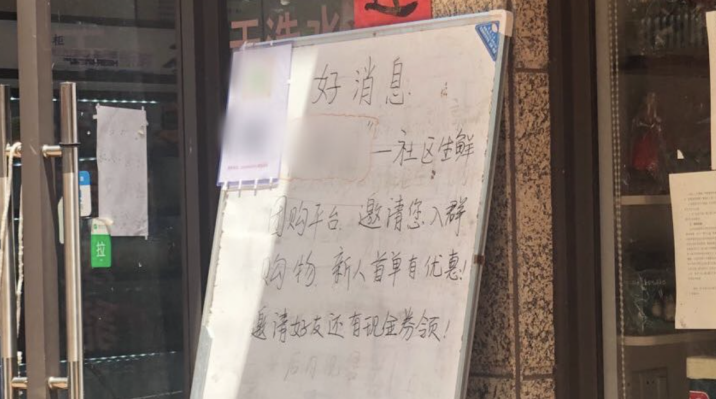 干洗水
好消息
”—社区生鲜
团购平台,邀请您入群
购物 新人首单有优惠!
邀请好友还有现金券领!
拉